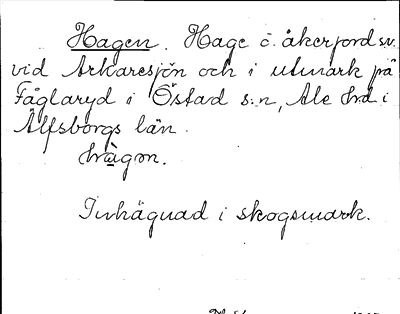 Hagen. Hage o. åkerjord sv.
vid Arkaresjön och i utmark på
Fåglaryd i Östad s:n, Ale hd i
Älfsborgs län.
hàgɷn.
Inhägnad i skogsmark.